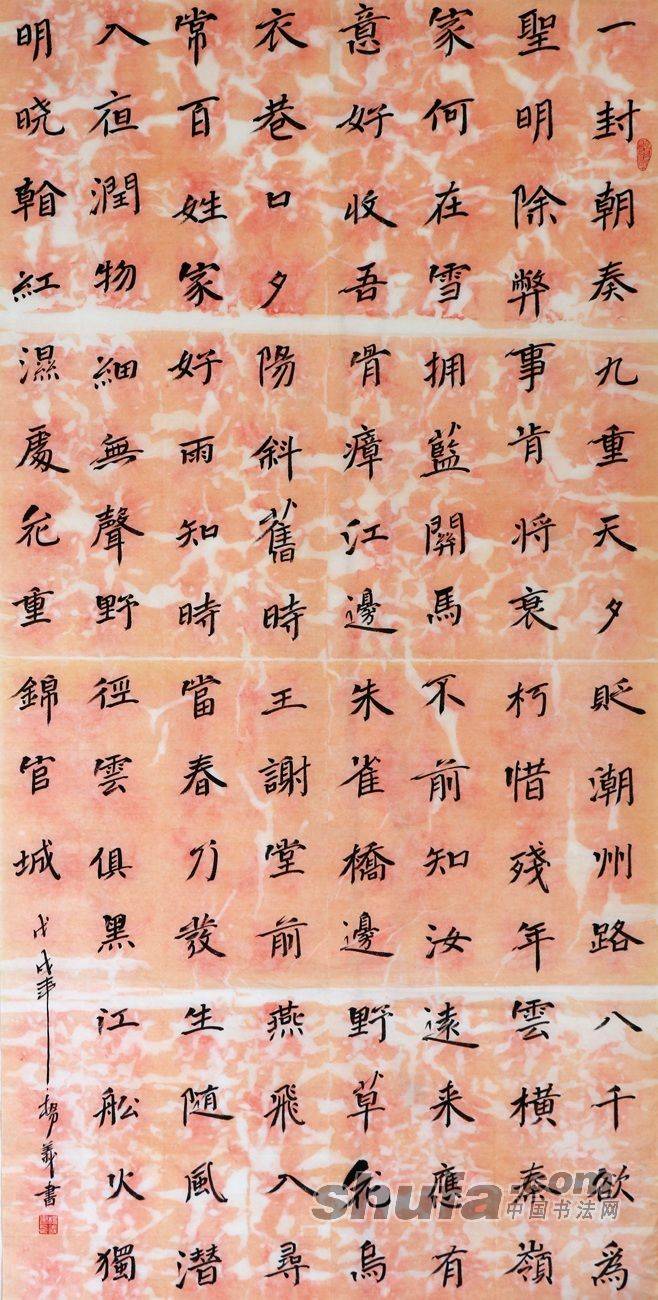 一封朝奏九重天夕貶潮州路八千欲為
聖明除弊事肯将衰朽惜殘年雲橫秦嶺
家何在雪拥藍關馬不前知汝遠来應有
意好收吾骨瘴江邊朱雀橋邊野草花烏
衣巷口夕陽斜舊時王謝堂前燕飛入尋
常百姓家好雨知時當春乃發生随風潛
入夜潤物細無聲野徑雲俱黑江船火獨
明晓看紅濕處花重錦官城
戊戌年楊義書
shufa.com
中国书法网